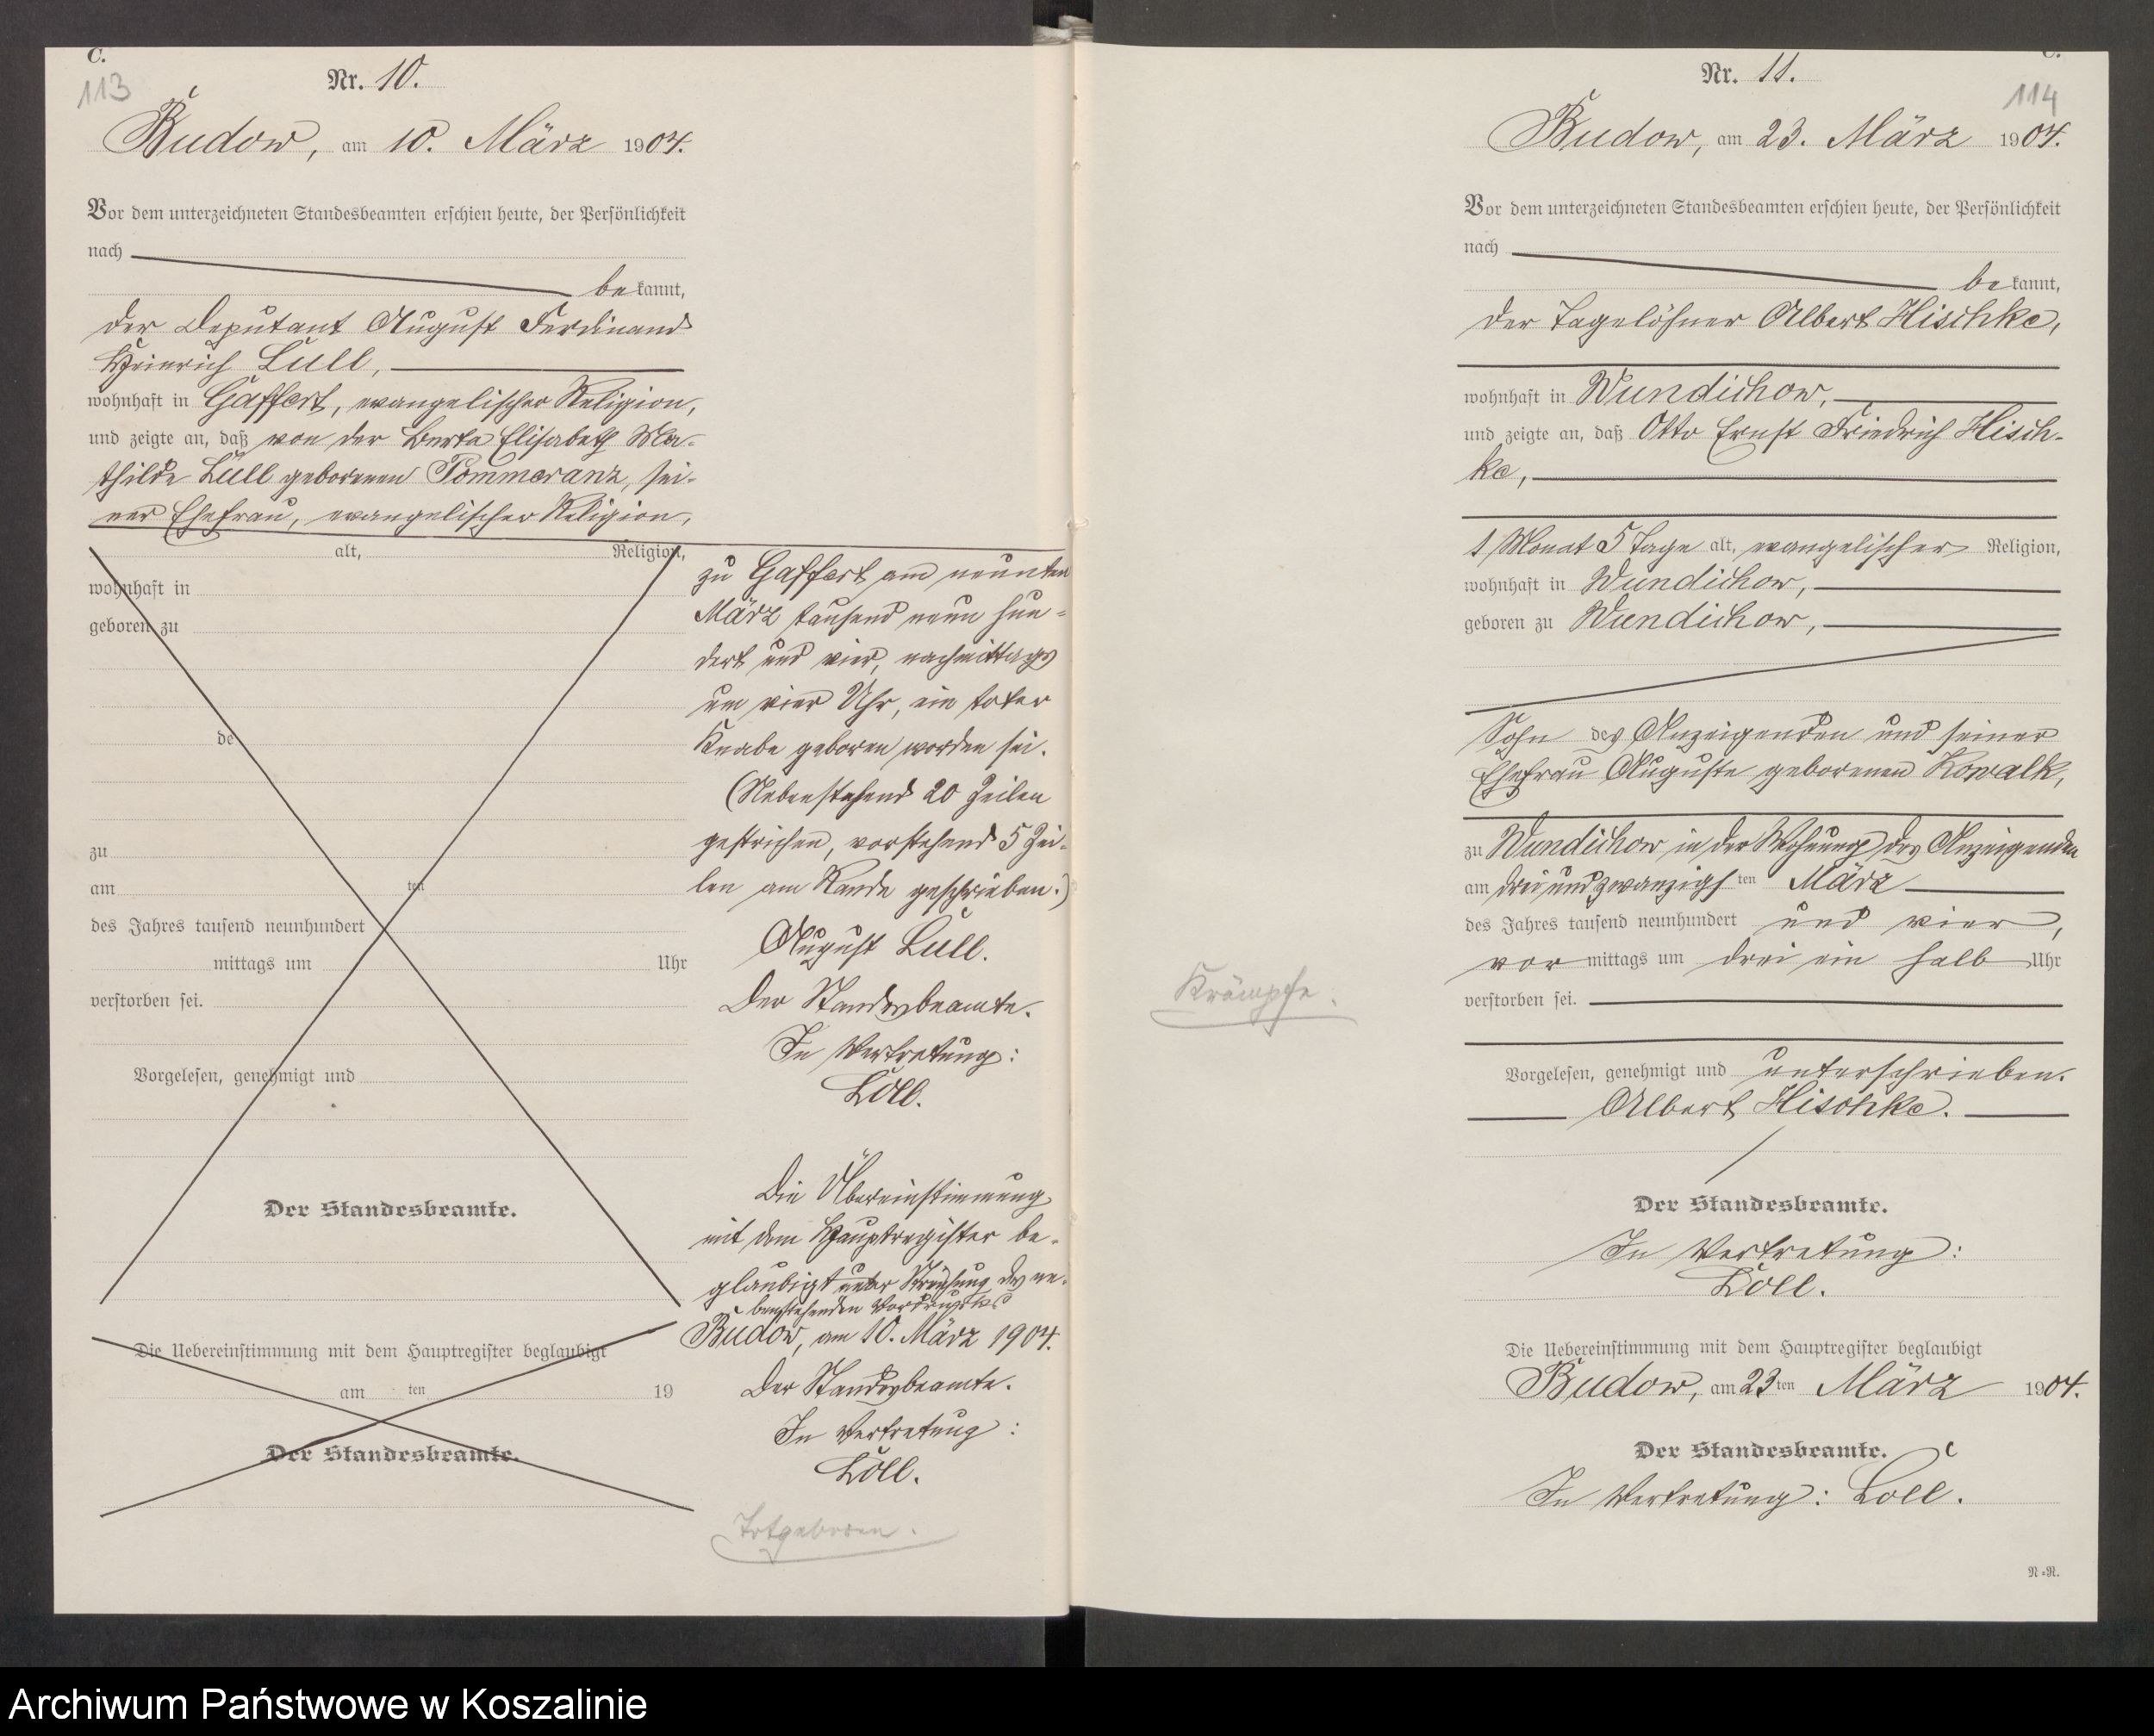 C.
113
Nr. 10.
Budow, am 10. März 1904.
Vor dem unterzeichneten Standesbeamten erschien heute, der Persönlichkeit
nach
bekannt,
der Deputant August Ferdinand
Heinrich Lüll,
wohnhaft in Gaffert, evangelischer Religion,
und zeigte an, daß von der Berta Elisabeth Ma-
thilde Lüll geborenen Pommeranz, sei-
ner Ehefrau, evangelischer Religion,
alt, Religion,
wohnhaft in
geboren zu
de
zu
am ten
des Jahres tausend neunhundert
mittags um Uhr
verstorben sei.
Vorgelesen, genehmigt und
Der Standesbeamte.
Die Uebereinstimmung mit dem Hauptregister beglaubigt
am ten 19
Der Standesbeamte.
zu Gaffert am neunten
März tausend neun hun-
dert und vier, nachmittags
um vier Uhr, ein toter
Knabe geboren worden sei.
(Nebenstehend 20 Zeilen
gestrichen, vorstehend 5 Zei-
len am Rande geschrieben.)
August Lüll.
Der Standesbeamte.
In Vertretung:
Löll.
Die Übereinstimmung
mit dem Hauptregister be-
glaubigt unter Streichung des ne-
benstehenden Vordrucks
Budow, am 10. März 1904.
Der Standesbeamte.
In Vertretung:
Löll.
Totgeboren.
C.
Nr. 11.
114
Budow, am 23. März 1904.
Vor dem unterzeichneten Standesbeamten erschien heute, der Persönlichkeit
nach
bekannt,
der Tagelöhner Albert Hischke,
wohnhaft in Wundichow,
und zeigte an, daß Otto Ernst Friedrich Hisch-
ke,
1 Monat 5 Tage alt, evangelischer Religion,
wohnhaft in Wundichow,
geboren zu Wundichow,
Sohn des Anzeigenden und seiner
Ehefrau Auguste geborenen Kowalk,
zu Wundichow in der Wohnung des Anzeigenden
am drei und zwanzigsten März
des Jahres tausend neunhundert und vier,
vormittags um drei ein halb Uhr
verstorben sei.
Krämpfe.
Vorgelesen, genehmigt und unterschrieben.
Albert Hischke.
Der Standesbeamte.
In Vertretung:
Löll.
Die Uebereinstimmung mit dem Hauptregister beglaubigt
Budow, am 23ten März 1904.
Der Standesbeamte.
In Vertretung: Löll.
N=R.
Archiwum Państwowe w Koszalinie